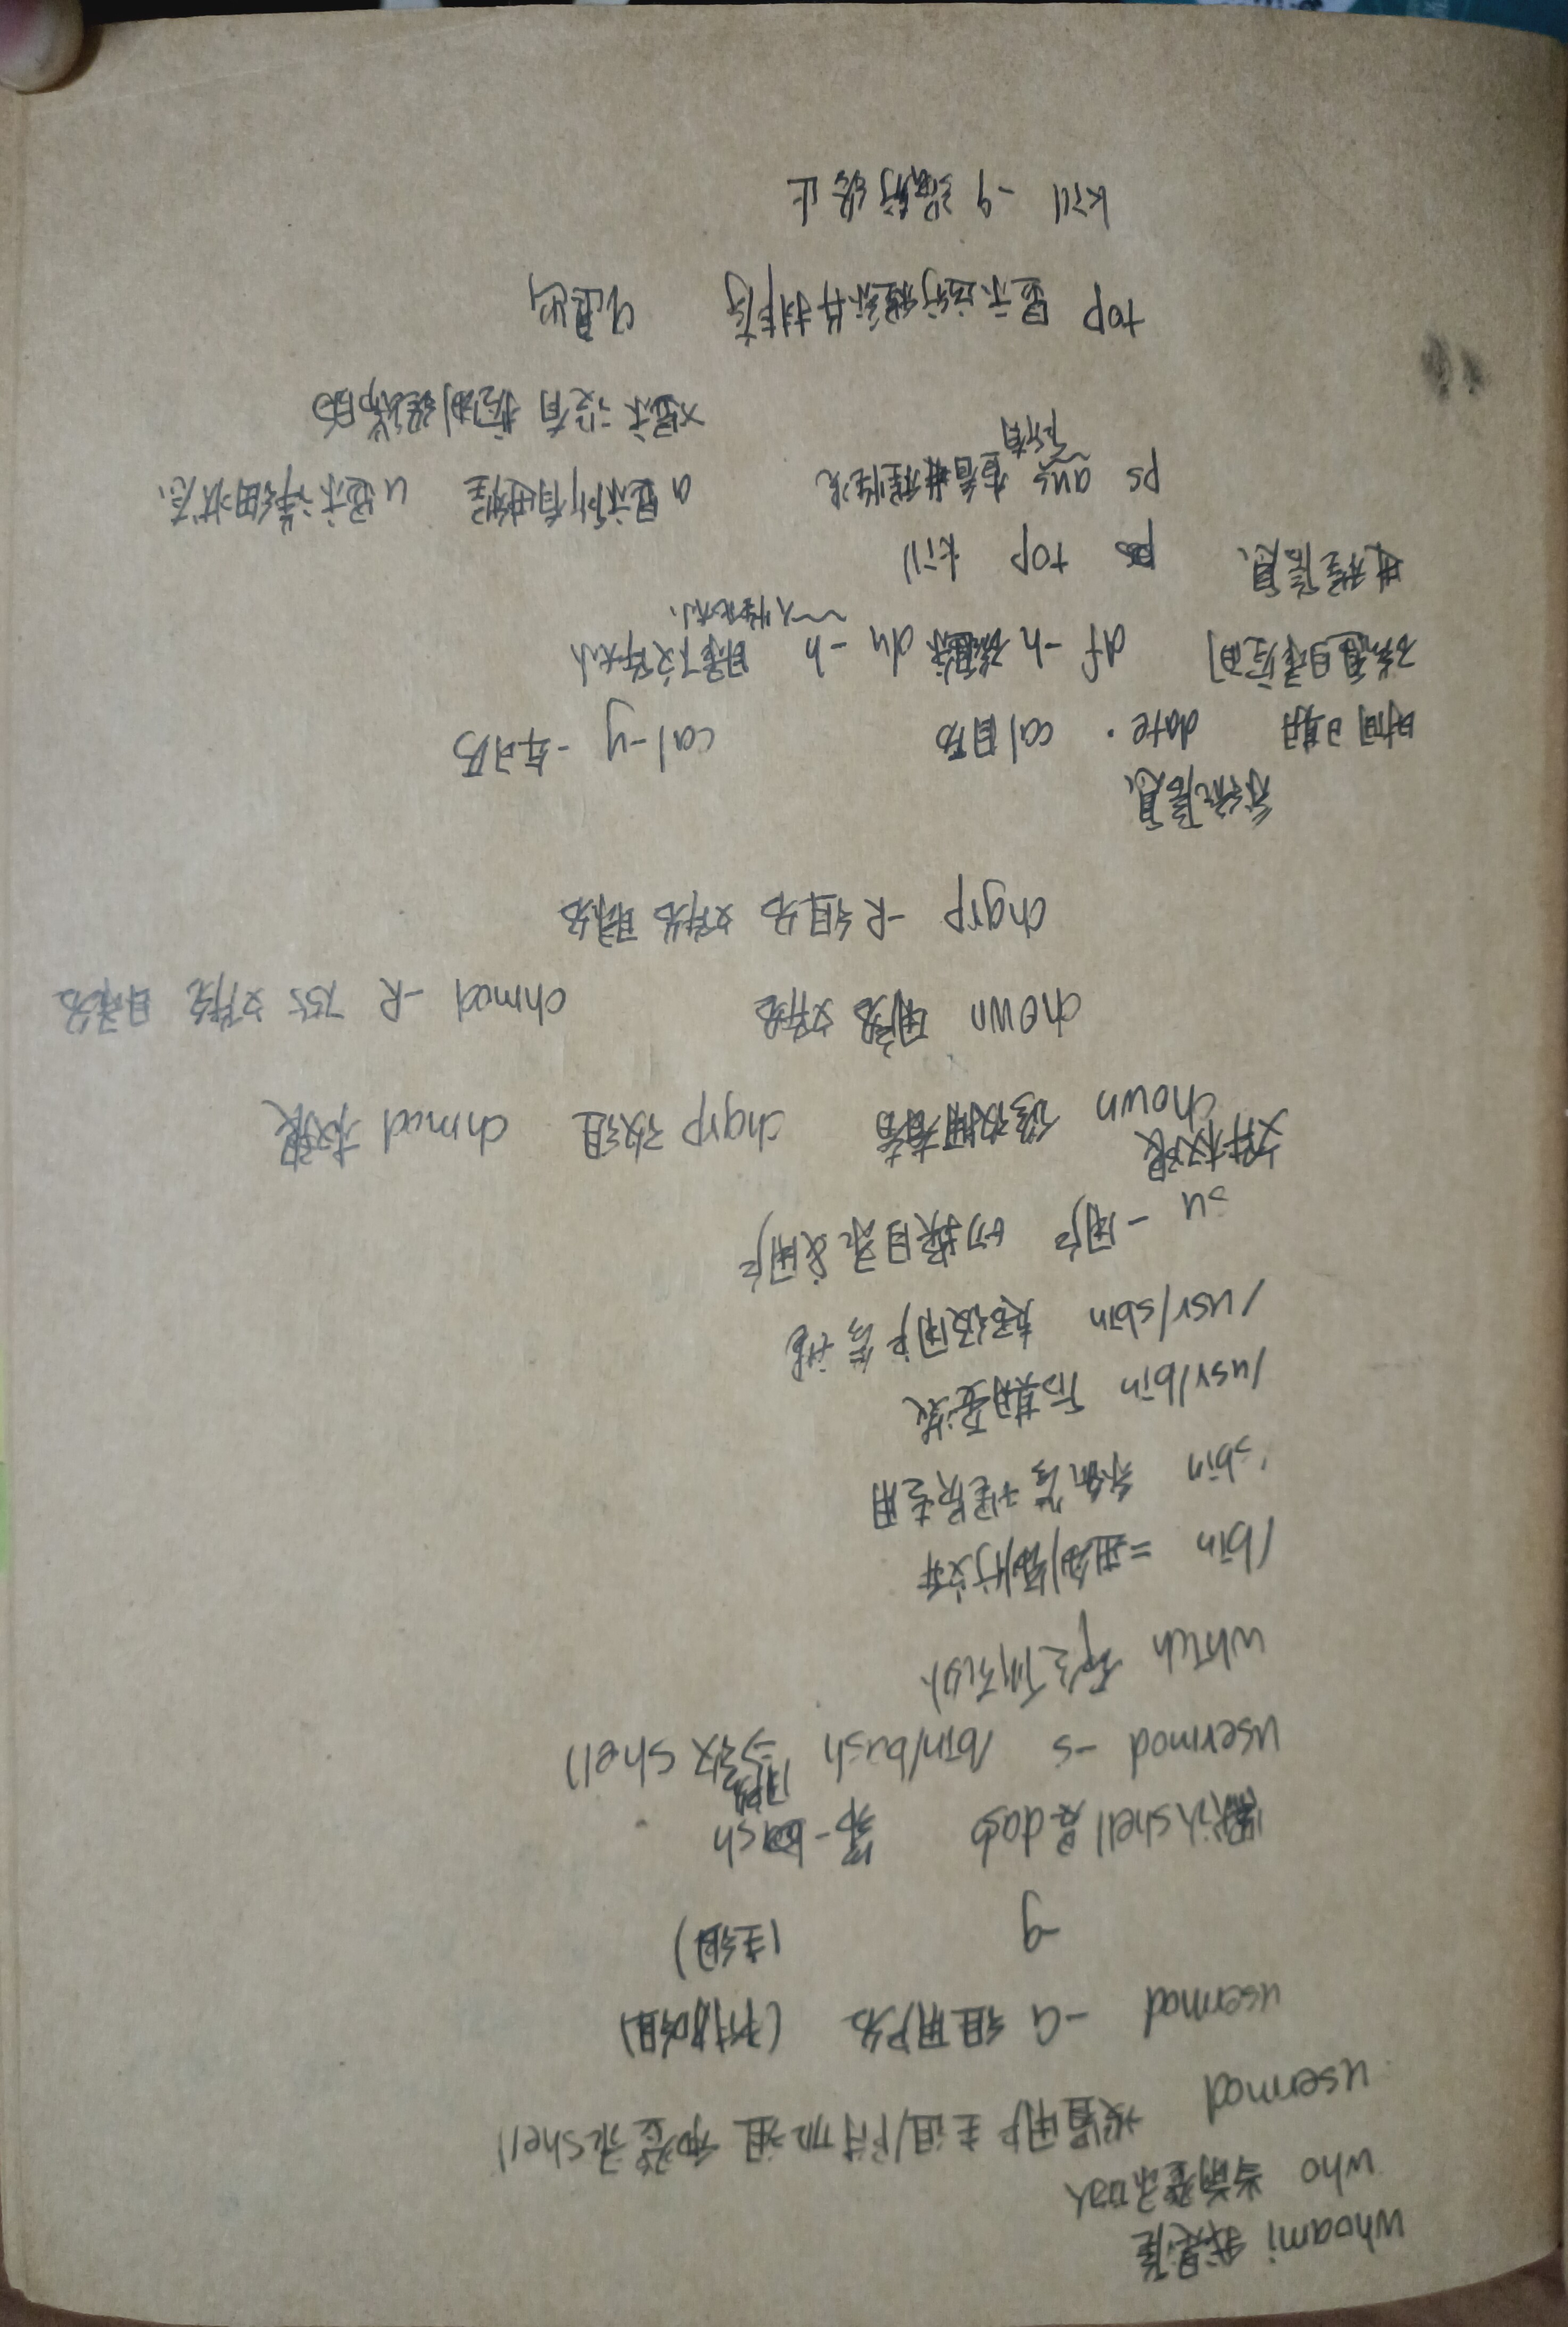 whoami 我是谁
who 当前登录的人
usermod 设置用户主组/附加组 和登录shell
usermod -G 组 用户名 (附加组)
-g (主组)
默认shell是dash 第一bash
usermod -s /bin/bash 用户名 改shell
which 命令所在处
/bin 二进制执行文件
/sbin 系统管理员专用
/usr/bin 后期安装
/usr/sbin 超级用户管理
su - 用户 切换目录或用户
文件权限
chown 修改拥有者 chgrp 改组 chmod 权限
chown 用户名 文件名 chmod -R 755 文件名 目录名
chgrp -R 组名 文件名 目录名
系统信息
时间日期 date. cal日历 cal -y 一年日历
磁盘目录空间 df -h 磁盘 du -h 目录下文件大小
人性化大小
进程信息 ps top kill
ps aux 查看进程情况 a显示所有进程 u显示详细状态
所有
x显示没有控制终端的
top 显示运行程序并排序 q退出
kill -9 强行终止